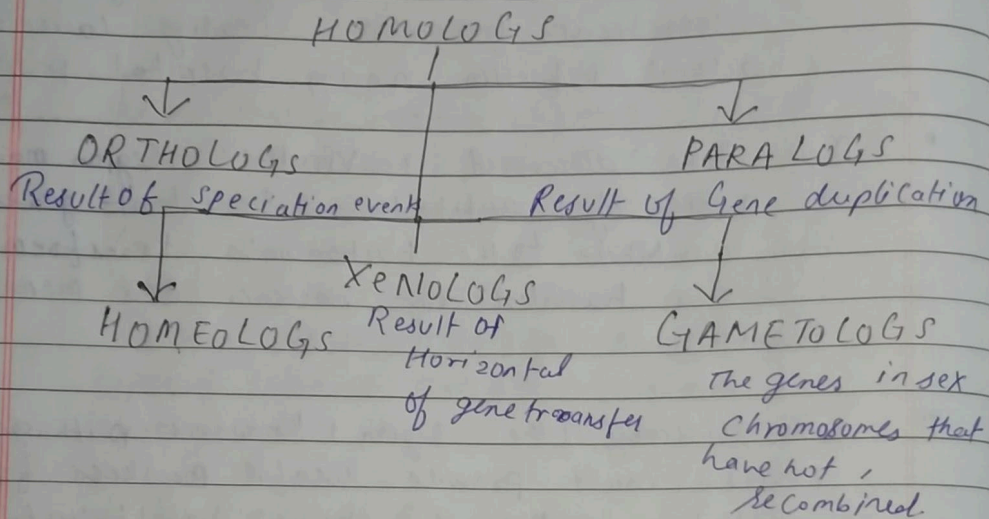 HOMOLOGS
ORTHOLOGS
PARALOGS
Result of speciation event
Result of Gene duplication
XeNOLOGS
HOMEOLOGS
Result of
Horizontal
of gene transfer
GAMETOLOGS
The genes in sex
Chromosomes that
have not
recombined.